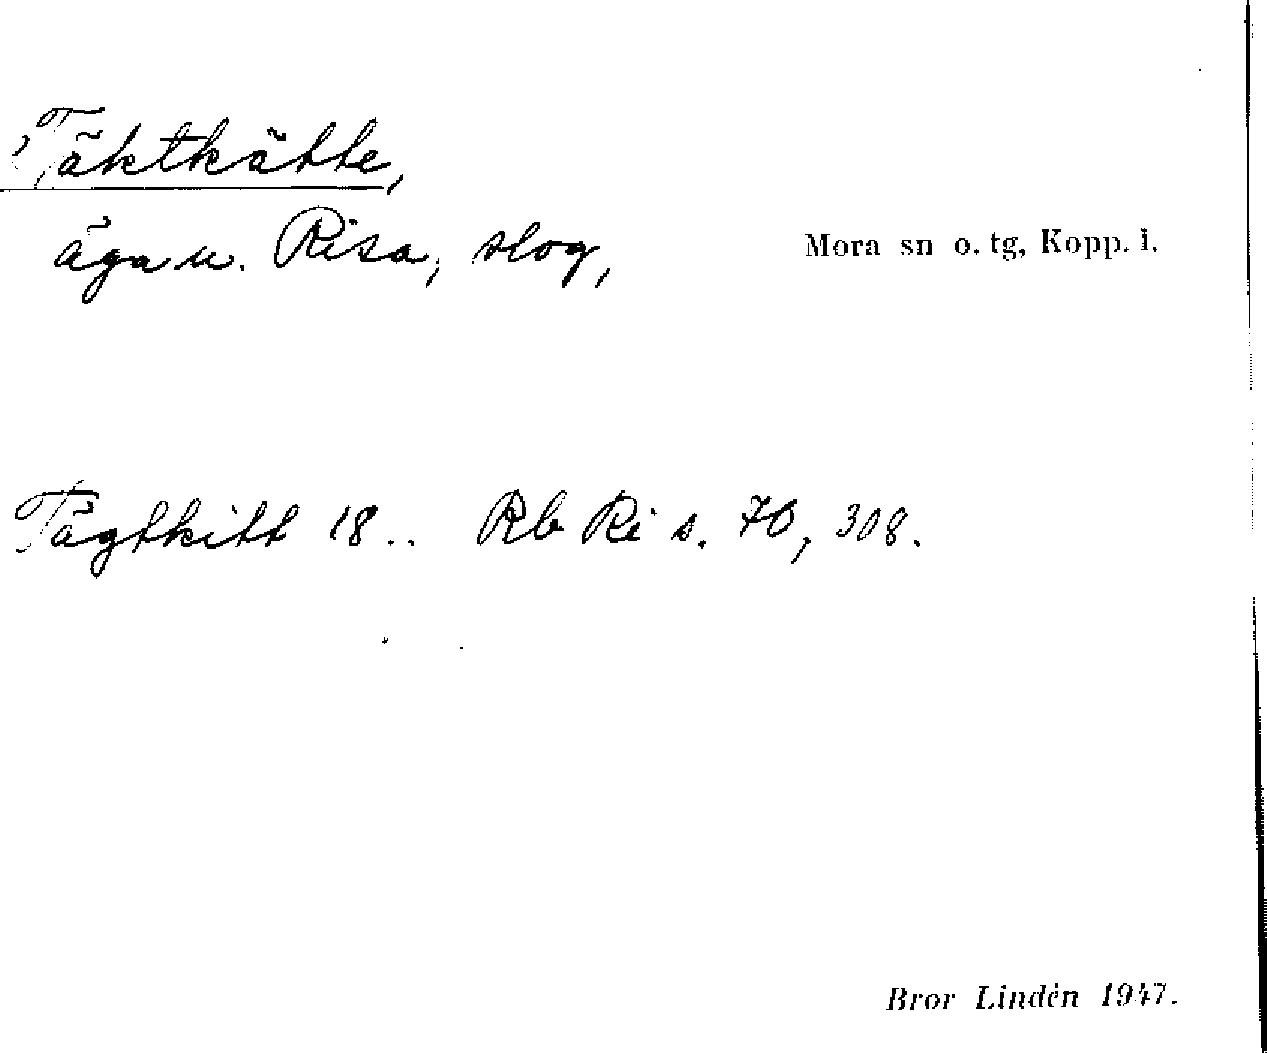 Täktkätte,
äga u. Risa, slog,
Mora sn o. tg, Kopp. l.
Tägtkitt 18.. Rb Ri s. 70, 308.
Bror Lindén 1947.